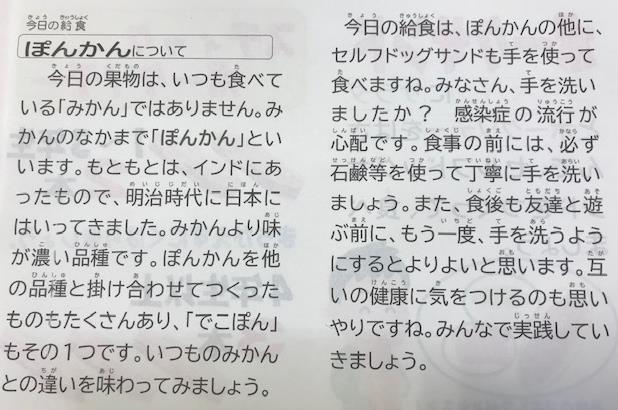 今日の給食
ぽんかんについて
今日の果物は、いつも食べて
いる「みかん」ではありません。み
かんのなかまで「ぽんかん」とい
います。もともとは、インドにあ
ったもので、明治時代に日本に
はいってきました。みかんより味
が濃い品種です。ぽんかんを他
の品種と掛け合わせてつくった
ものもたくさんあり、「でこぽん」
もその１つです。いつものみかん
との違いを味わってみましょう。
今日の給食は、ぽんかんの他に、
セルフドッグサンドも手を使って
食べますね。みなさん、手を洗い
ましたか？　感染症の流行が
心配です。食事の前には、必ず
石鹸等を使って丁寧に手を洗い
ましょう。また、食後も友達と遊
ぶ前に、もう一度、手を洗うよう
にするとよりよいと思います。互
いの健康に気をつけるのも思い
やりですね。みんなで実践してい
きましょう。